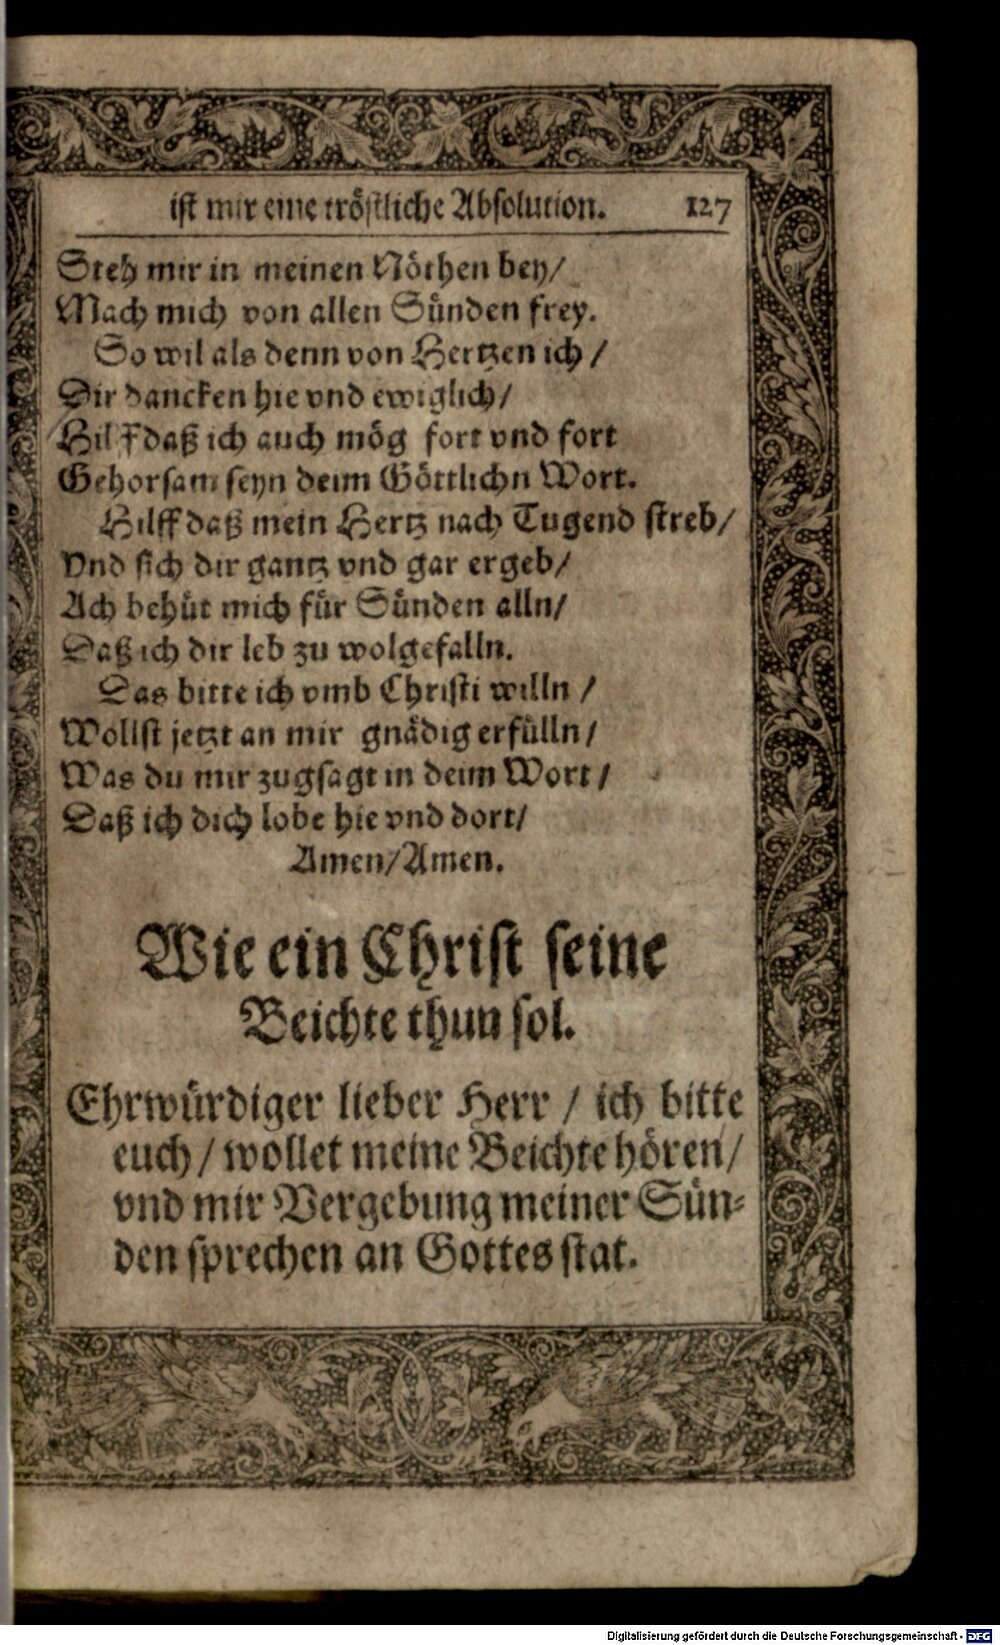 ist mir eine tröstliche Absolution. 127
Steh mir in meinen Nöthen bey/
Mach mich von allen Sünden frey.
So wil als denn von Hertzen ich /
Dir dancken hie vnd ewiglich/
Hilff daß ich auch mög fort vnd fort
Gehorsam seyn deim Göttlichn Wort.
Hilff daß mein Hertz nach Tugend streb/
Vnd sich dir gantz vnd gar ergeb/
Ach behüt mich für Sünden alln/
Daß ich dir leb zu wolgefalln.
Das bitte ich vmb Christi willn /
Wollst jetzt an mir gnädig erfülln/
Was du mir zugsagt in deim Wort /
Daß ich dich lobe hie vnd dort/
Amen/Amen.
Wie ein Christ seine
Beichte thun sol.
Ehrwürdiger lieber Herr / ich bitte
euch / wollet meine Beichte hören/
vnd mir Vergebung meiner Sün-
den sprechen an Gottes stat.
Digitalisierung gefördert durch die Deutsche Forschungsgemeinschaft - DFG